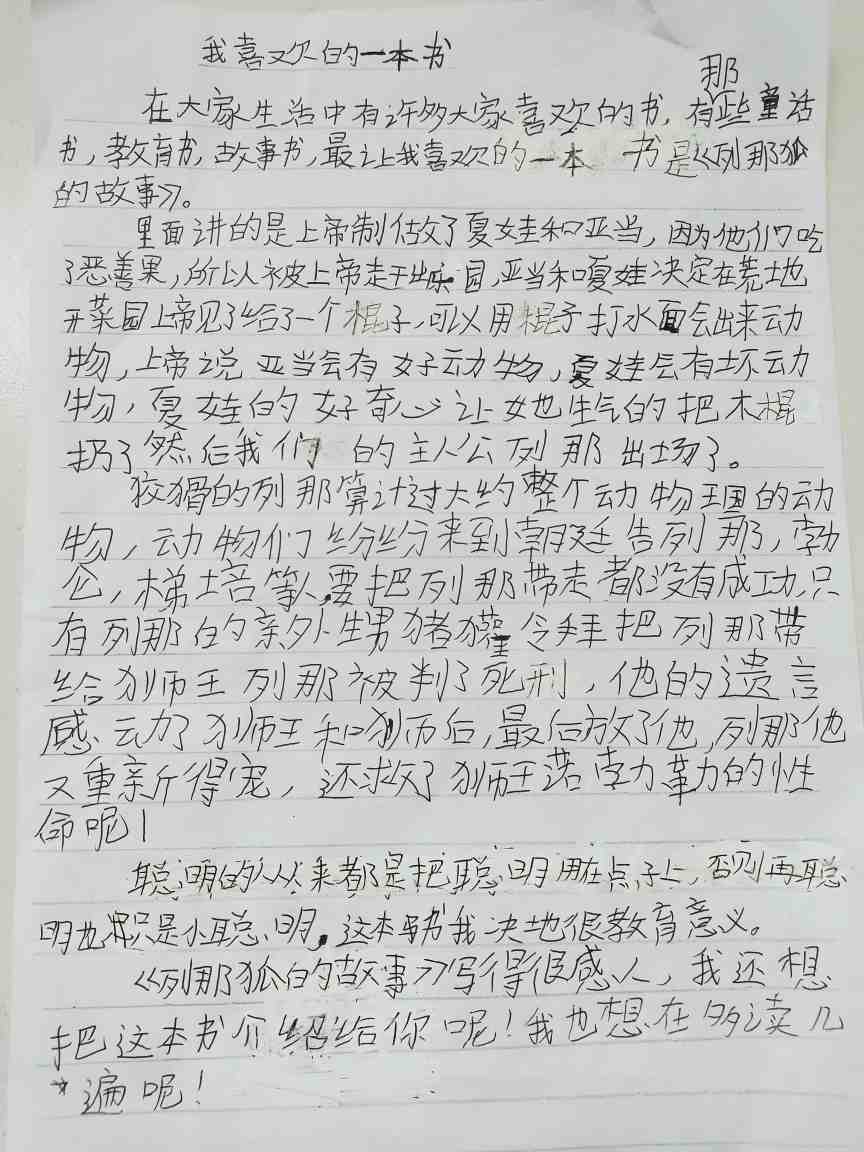 我喜欢的一本书
在大家生活中有许多大家喜欢的书,有那些童话
书,教育书,故事书,最让我喜欢的一本 书是《列那狐
的故事》。
里面讲的是上帝制做了夏娃和亚当,因为他们吃
了恶善果,所以被上帝走开出乐园,亚当和嗄娃决定在荒地
开菜园上帝见了给了一个棍子,可以用棍子打水面会出来动
物,上帝说亚当会有好动物,夏娃会有坏动
物,夏娃的好奇心让她生气的把木棍
扔了然后我们 的主人公列那出场了。
狡猾的列那算计过大约整个动物王国的动
物,动物们纷纷来到朝廷告列那,勃
仑,梯培等人要把列那带走都没有成功,只
有列那的亲外生男猪獾 令 把列那带
给狮王列那被判了死刑,他的遗言
感动了狮王和狮后,最后放了他,列那他
又重新得宠,还求了狮王诺 勒的性
命呢!
聪明的人从来都是把聪明用在点子上,否则再聪
明也只是小聪明,这本书我决地很教育意义。
《列那狐的故事》写得很感人,我还想
把这本书介绍给你呢!我也想在多读几
遍呢!